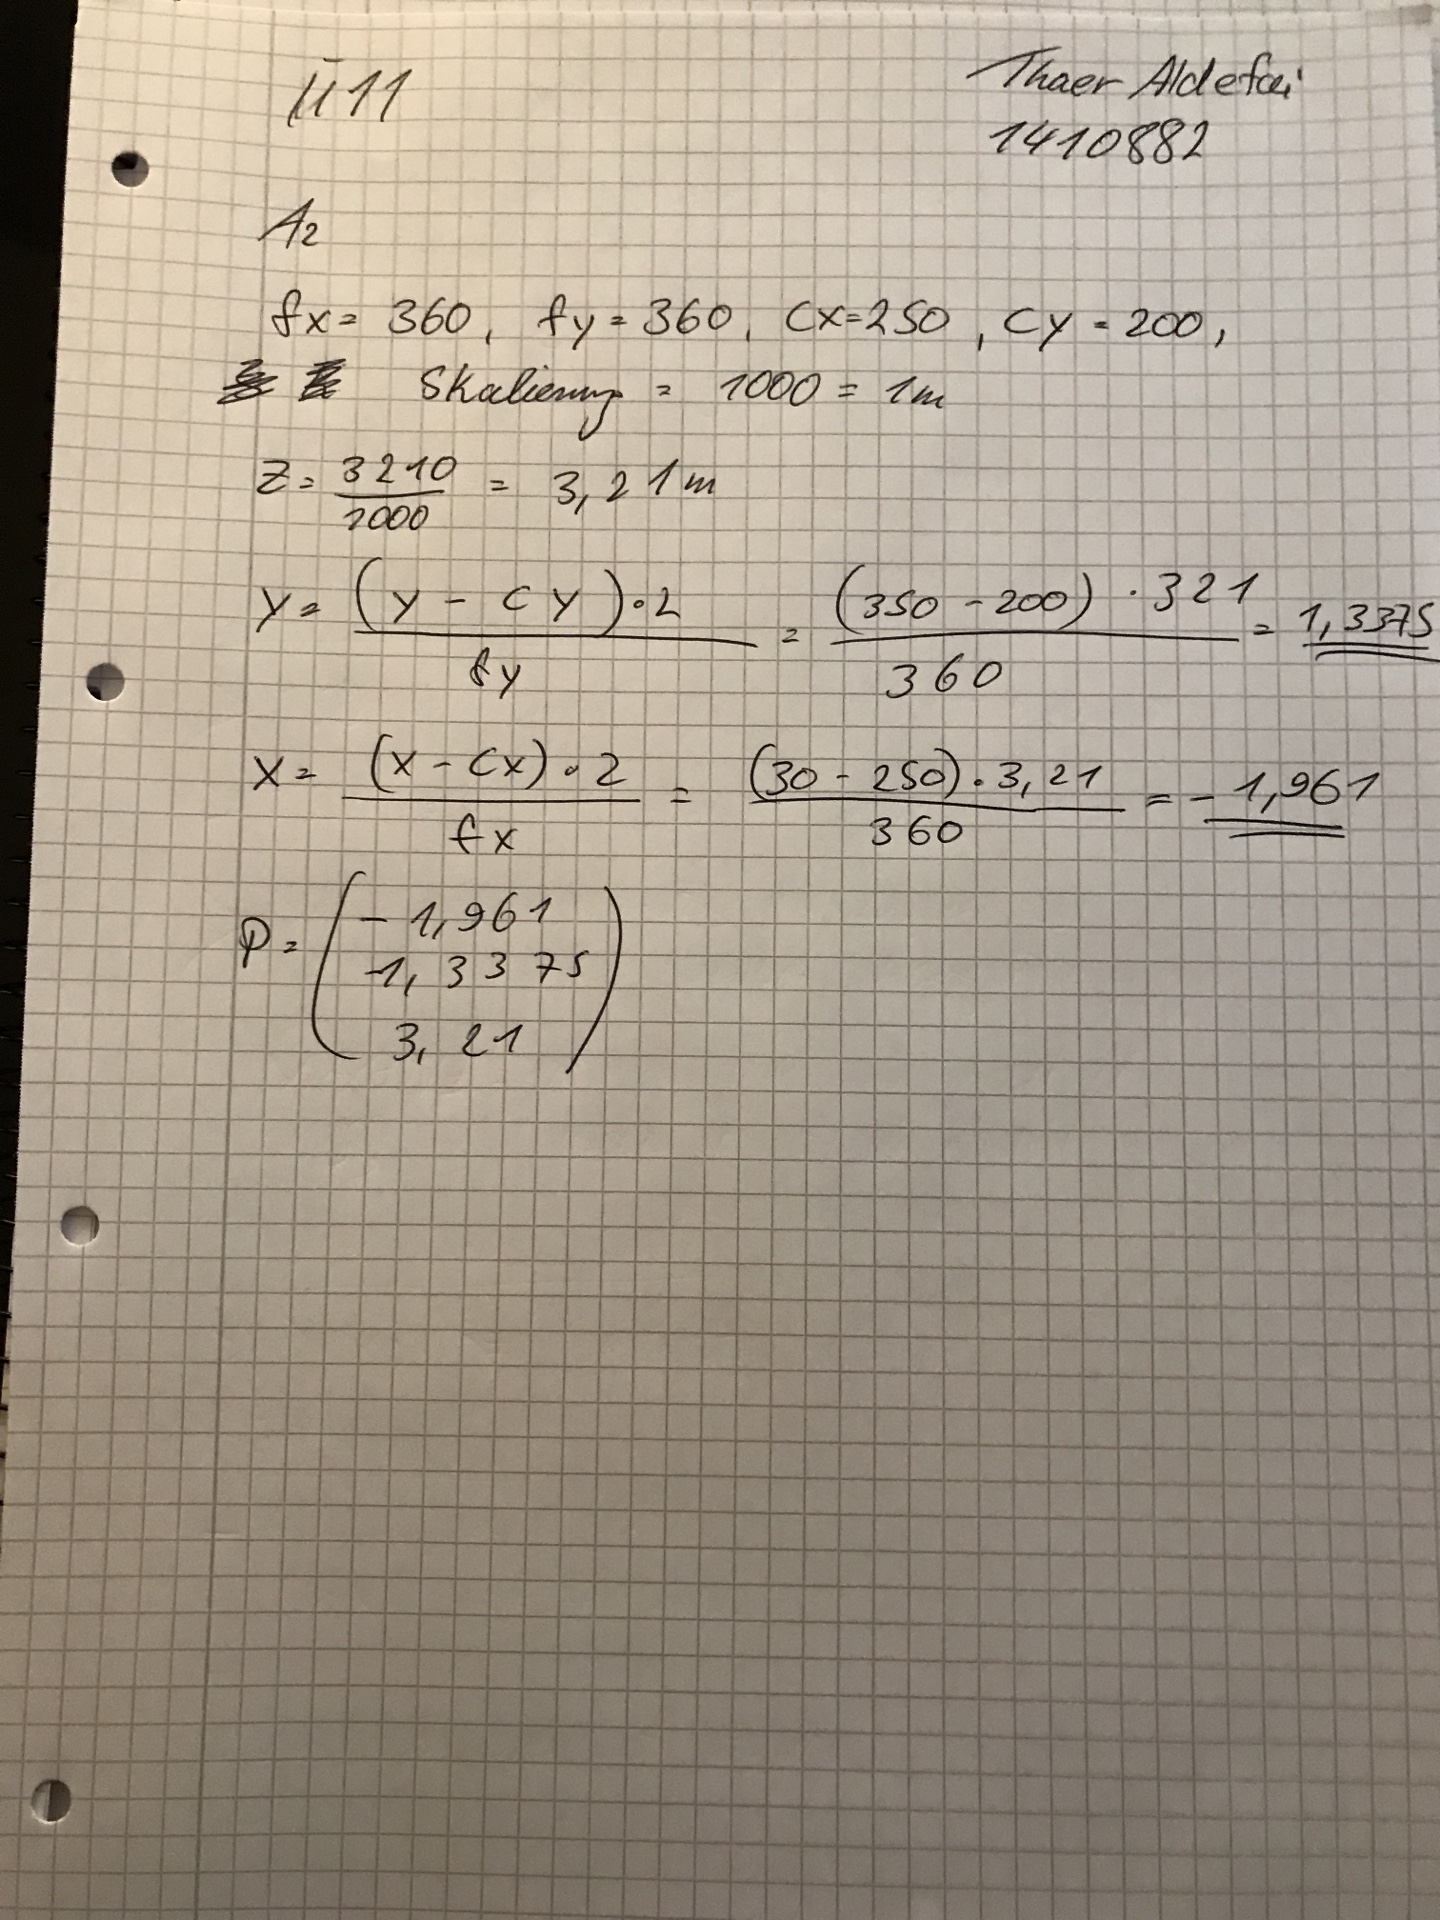 Ü11
Thaer Aldefai
1410882
A2
fx = 360, fy = 360, Cx=250, Cy = 200,
Skalierung = 1000 = 1m
Z = 3210 / 1000 = 3,21m
y = (y - Cy)·2 / fy = (350 - 200) · 321 / 360 = 1,3375
X = (x - Cx)·2 / fx = (30 - 250)·3,21 / 360 = -1,961
P = ( -1,961
1,3375
3,21 )